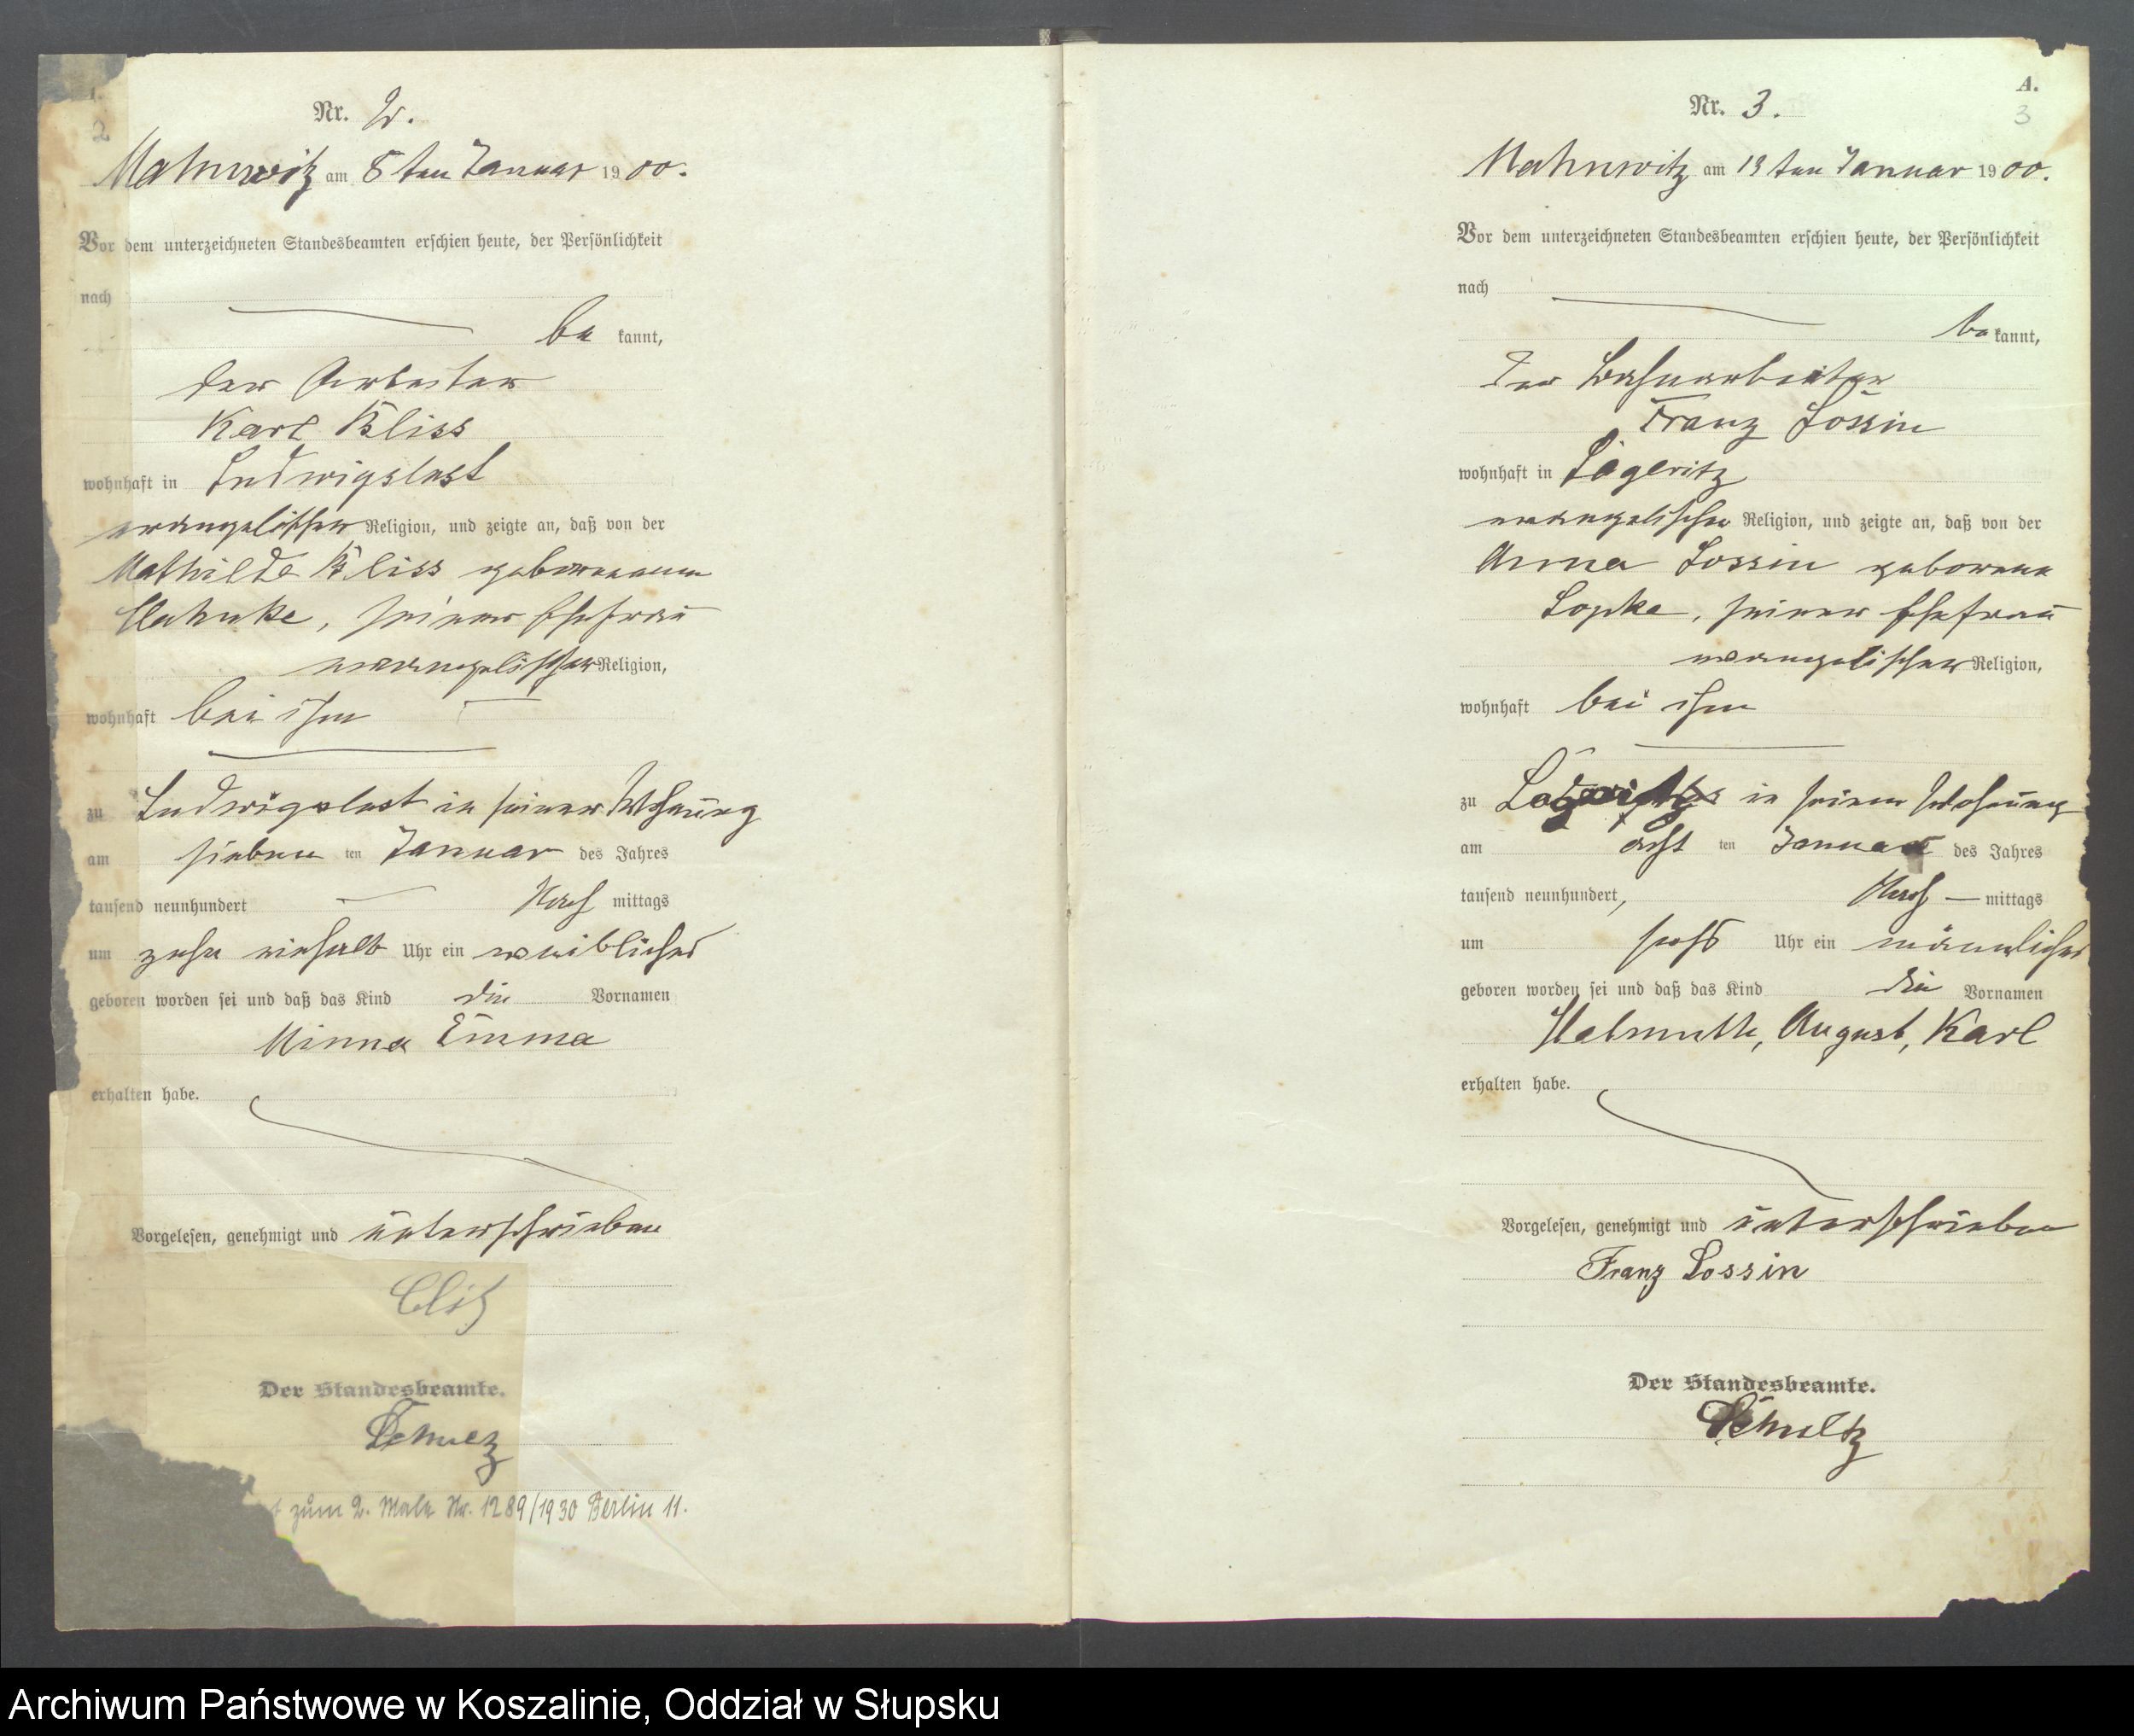 Nr. 2.
2
Mahnwitz am 8 ten Januar 1900.
Vor dem unterzeichneten Standesbeamten erschien heute, der Persönlichkeit
nach
be kannt,
der Arbeiter
Karl Kliss
wohnhaft in Ludwigslust
evangelischer Religion, und zeigte an, daß von der
Mathilde Kliss geborenen
Hahnke, seiner Ehefrau
evangelischer Religion,
wohnhaft bei ihm
zu Ludwigslust in seiner Wohnung
am sieben ten Januar des Jahres
tausend neunhundert Nach mittags
um zehn einhalb Uhr ein weibliches
geboren worden sei und daß das Kind die Vornamen
Minna Emma
erhalten habe.
Vorgelesen, genehmigt und unterschrieben
Der Standesbeamte.
zum 2. Male Nr. 1289/1930 Berlin 11.
A.
Nr. 3.
3
Mahnwitz am 13 ten Januar 1900.
Vor dem unterzeichneten Standesbeamten erschien heute, der Persönlichkeit
nach
be kannt,
Der Bahnarbeiter
Franz Lossin
wohnhaft in Zogeritz
evangelischer Religion, und zeigte an, daß von der
Anna Lossin geborene
Sopke, seiner Ehefrau
evangelischer Religion,
wohnhaft bei ihm
zu in seiner Wohnung
am acht ten Januar des Jahres
tausend neunhundert, Nach — mittags
um sechs Uhr ein männliches
geboren worden sei und daß das Kind die Vornamen
Helmuth, August, Karl
erhalten habe.
Vorgelesen, genehmigt und unterschrieben
Franz Lossin
Der Standesbeamte.
Schultz
Archiwum Państwowe w Koszalinie, Oddział w Słupsku